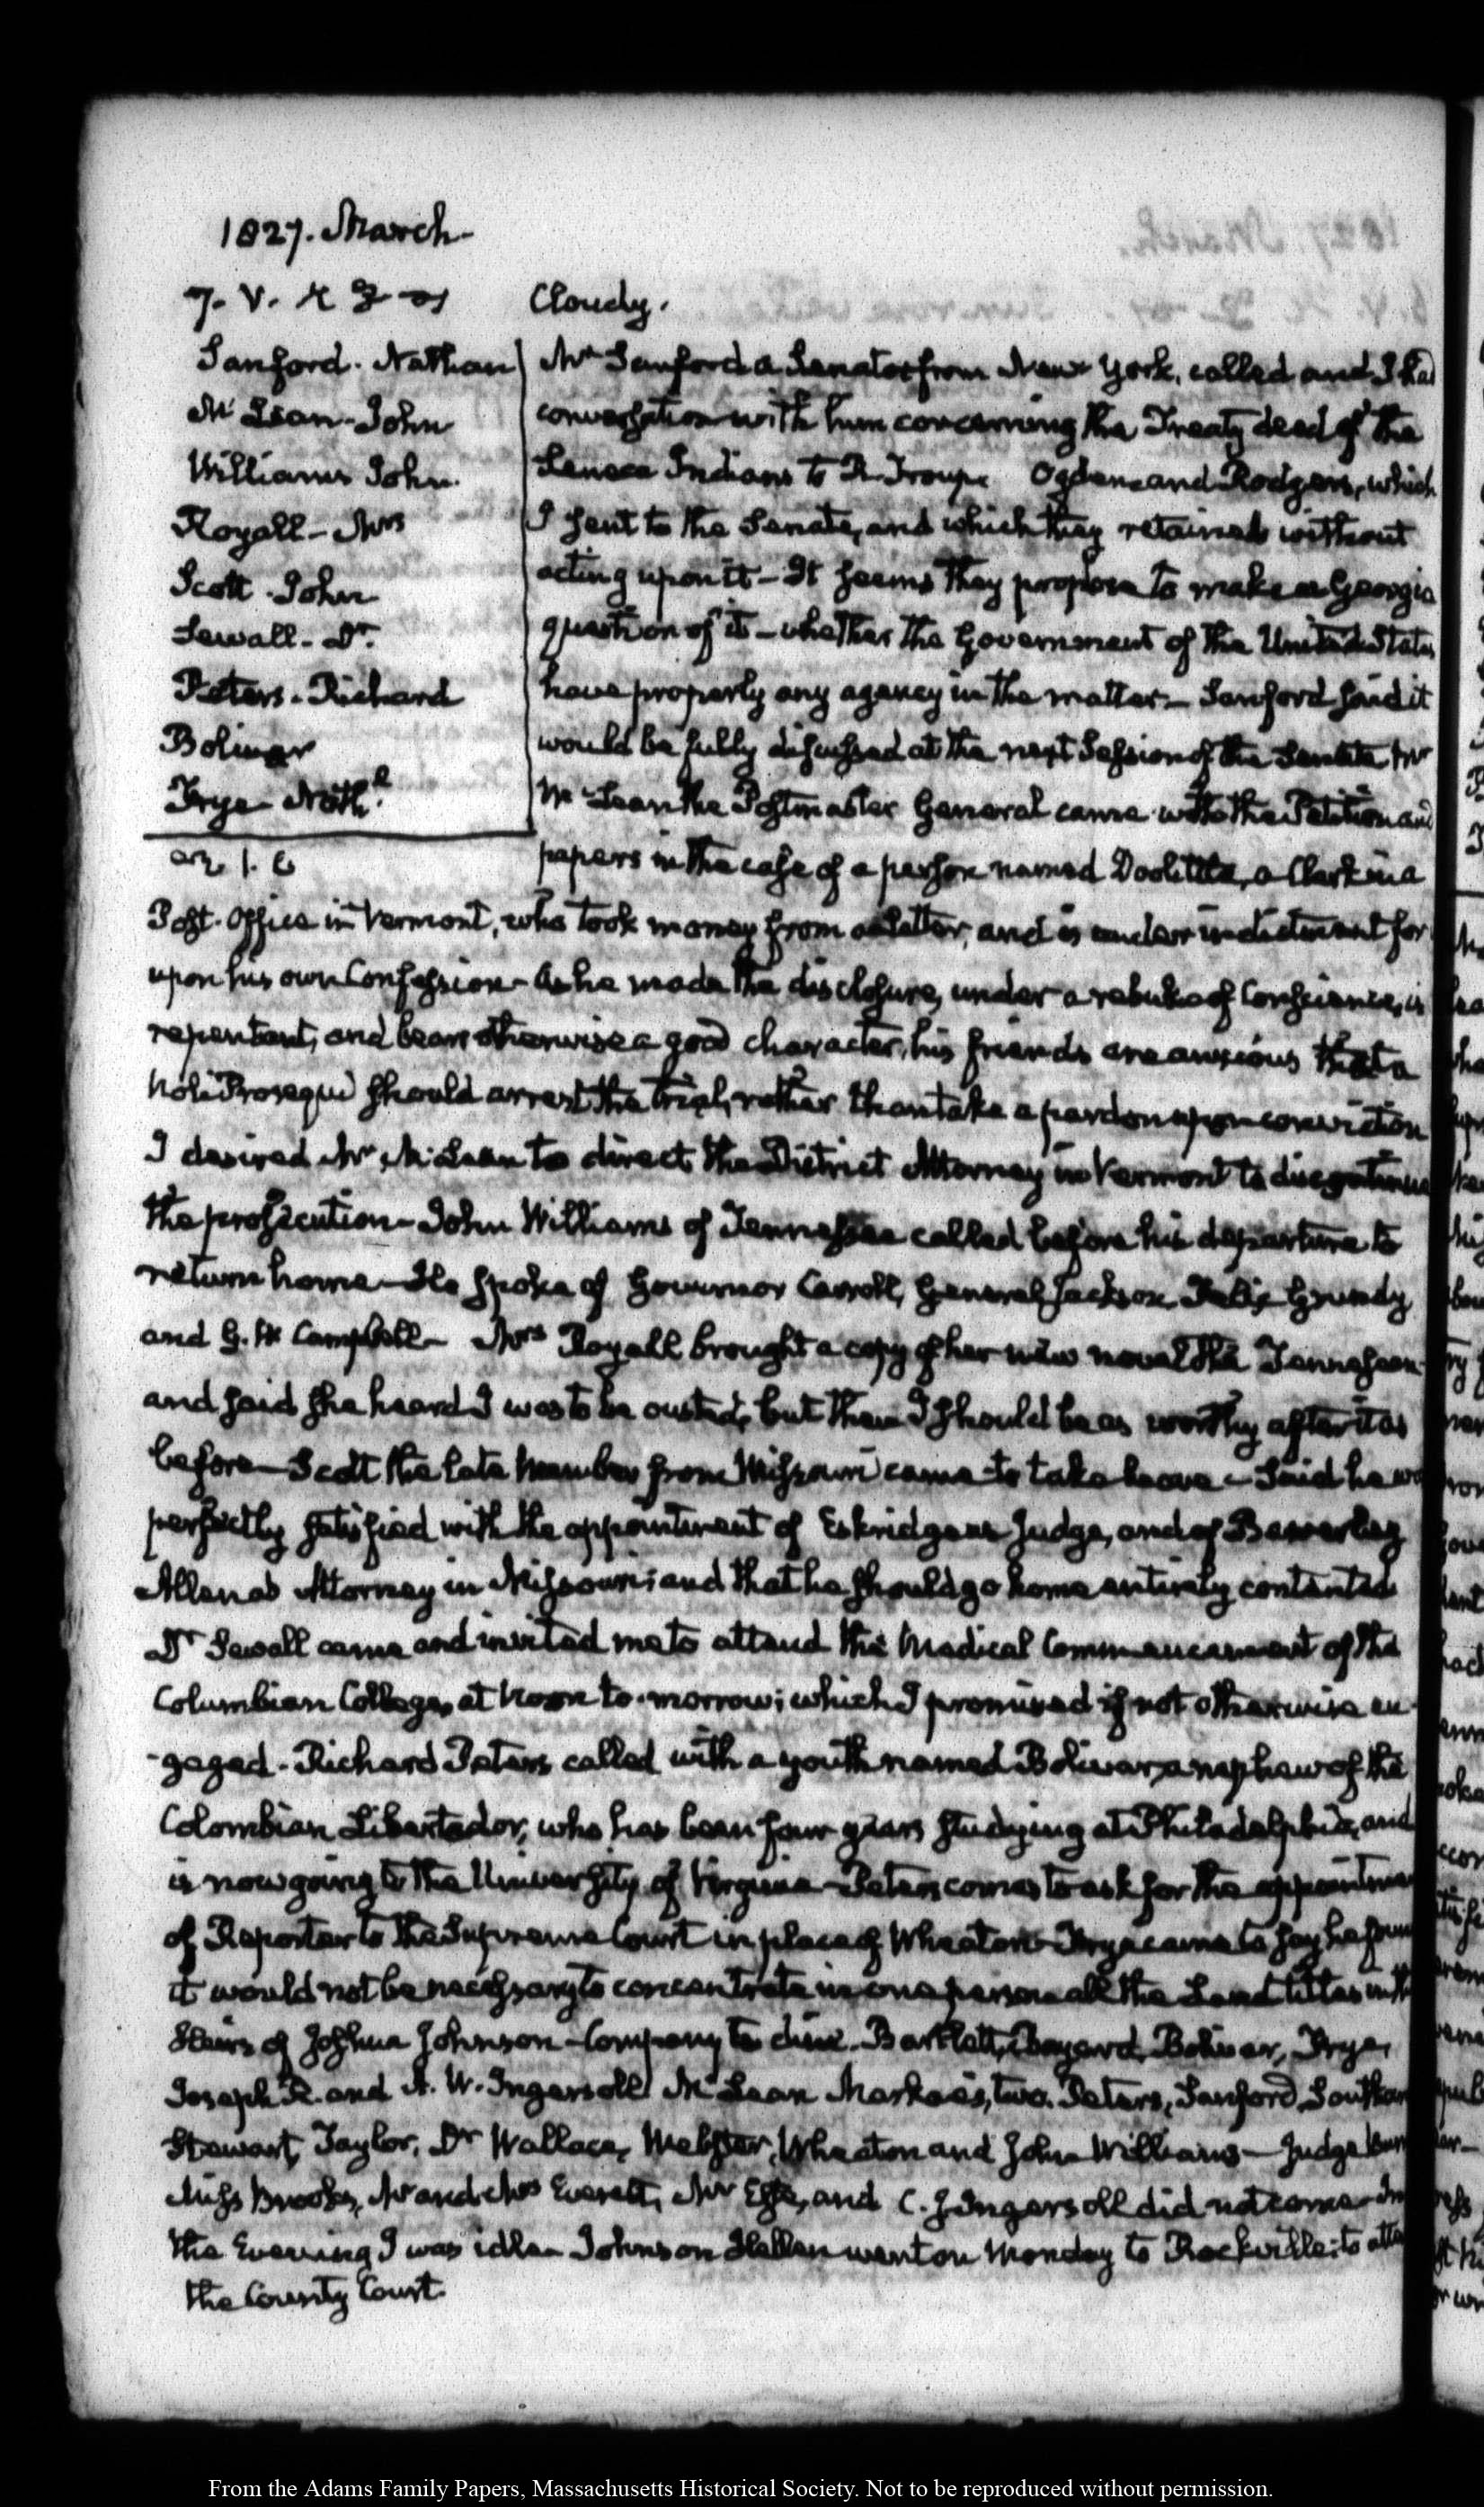 1827. March
7. V.
Cloudy.
Sanford. Nathan
Mc Lean. John
Williams John.
Royall - Mrs
Scott. John
Sewall - Dr.
Peters. Richard
Bolivar
Frye Nathl
Mr Sanford a Senator from New York, called and I had
conversation with him concerning the Treaty deed of the
Seneca Indians to R. Troup Ogden and Rodgers, which
I sent to the Senate, and which they retained without
acting upon it - It seems they propose to make a Georgia
question of it - whether the Government of the United States
have properly any agency in the matter - Sanford said it
would be fully discussed at the next Session of the Senate Mr
Mc Lean the Postmaster General came with the Petition and
papers in the case of a person named Doolittle, a Clerk in a
Post-Office in Vermont, who took money from a Letter, and is under indictment for
upon his own Confession - As he made the disclosure, under a rebuke of Conscience, is
repentant, and bears otherwise a good character, his friends are anxious that a
Noli Prosequi should arrest the trial, rather than take a pardon upon conviction
I desired Mr McLean to direct the District Attorney in Vermont to discontinue
the prosecution - John Williams of Tennessee called before his departure to
return home - He spoke of Governor Carroll, General Jackson Felix Grundy
and G. W Campbell - Mrs Royall brought a copy of her new novel the Tennessean
and said she heard I was to be ousted, but then I should be as worthy after it as
before - Scott the late Member from Missouri came to take leave - Said he was
perfectly satisfied with the appointment of Eskridge as Judge, and of Beverley
Allen as Attorney in Missouri; and that he should go home entirely contented
Dr Sewall came and invited me to attend the Medical Commencement of the
Columbian College, at Noon to-morrow; which I promised if not otherwise en
-gaged - Richard Peters called with a youth named Bolivar, a nephew of the
Colombian Libertador, who has been four years studying at Philadelphia, and
is now going to the University of Virginia - Peters comes to ask for the appointment
of Reporter to the Supreme Court in place of Wheaton - Frye came to say he found
it would not be necessary to concentrate in one person all the Land titles in the
Heirs of Joshua Johnson - Company to dine. Bartlett, Bayard, Bolivar, Frye,
Joseph R. and Ingersoll McLean Markoe's, two. Peters, Sanford, Southard
Stewart, Taylor, Dr Wallace, Webster, Wheaton and John Williams - Judge
Miss Brooks, Mr and Mrs Everett, Mr Este, and C. J. Ingersoll did not come - In
the Evening I was idle - Johnson Hellen went on Monday to Rockville: to atte
the County Court.
From the Adams Family Papers, Massachusetts Historical Society. Not to be reproduced without permission.